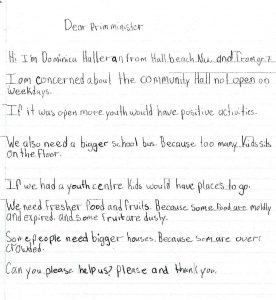 Dear Prim minister
Hi I'm Dominica Halleran from Hall beach Nu. and I'com gr.7
I am concerned about the community Hall not open on
weekdays.
If it was open more youth would have positive activities.
We also need a bigger school bus. Because too many Kids sit
on the floor.
If we had a youth centre Kids would have places to go.
We need Fresher Food and fruits. Because some food are moldy
and expired. and some fruit are dusty.
Some people need bigger houses. Because som are over
crowded.
Can you please help us? please and thank you.